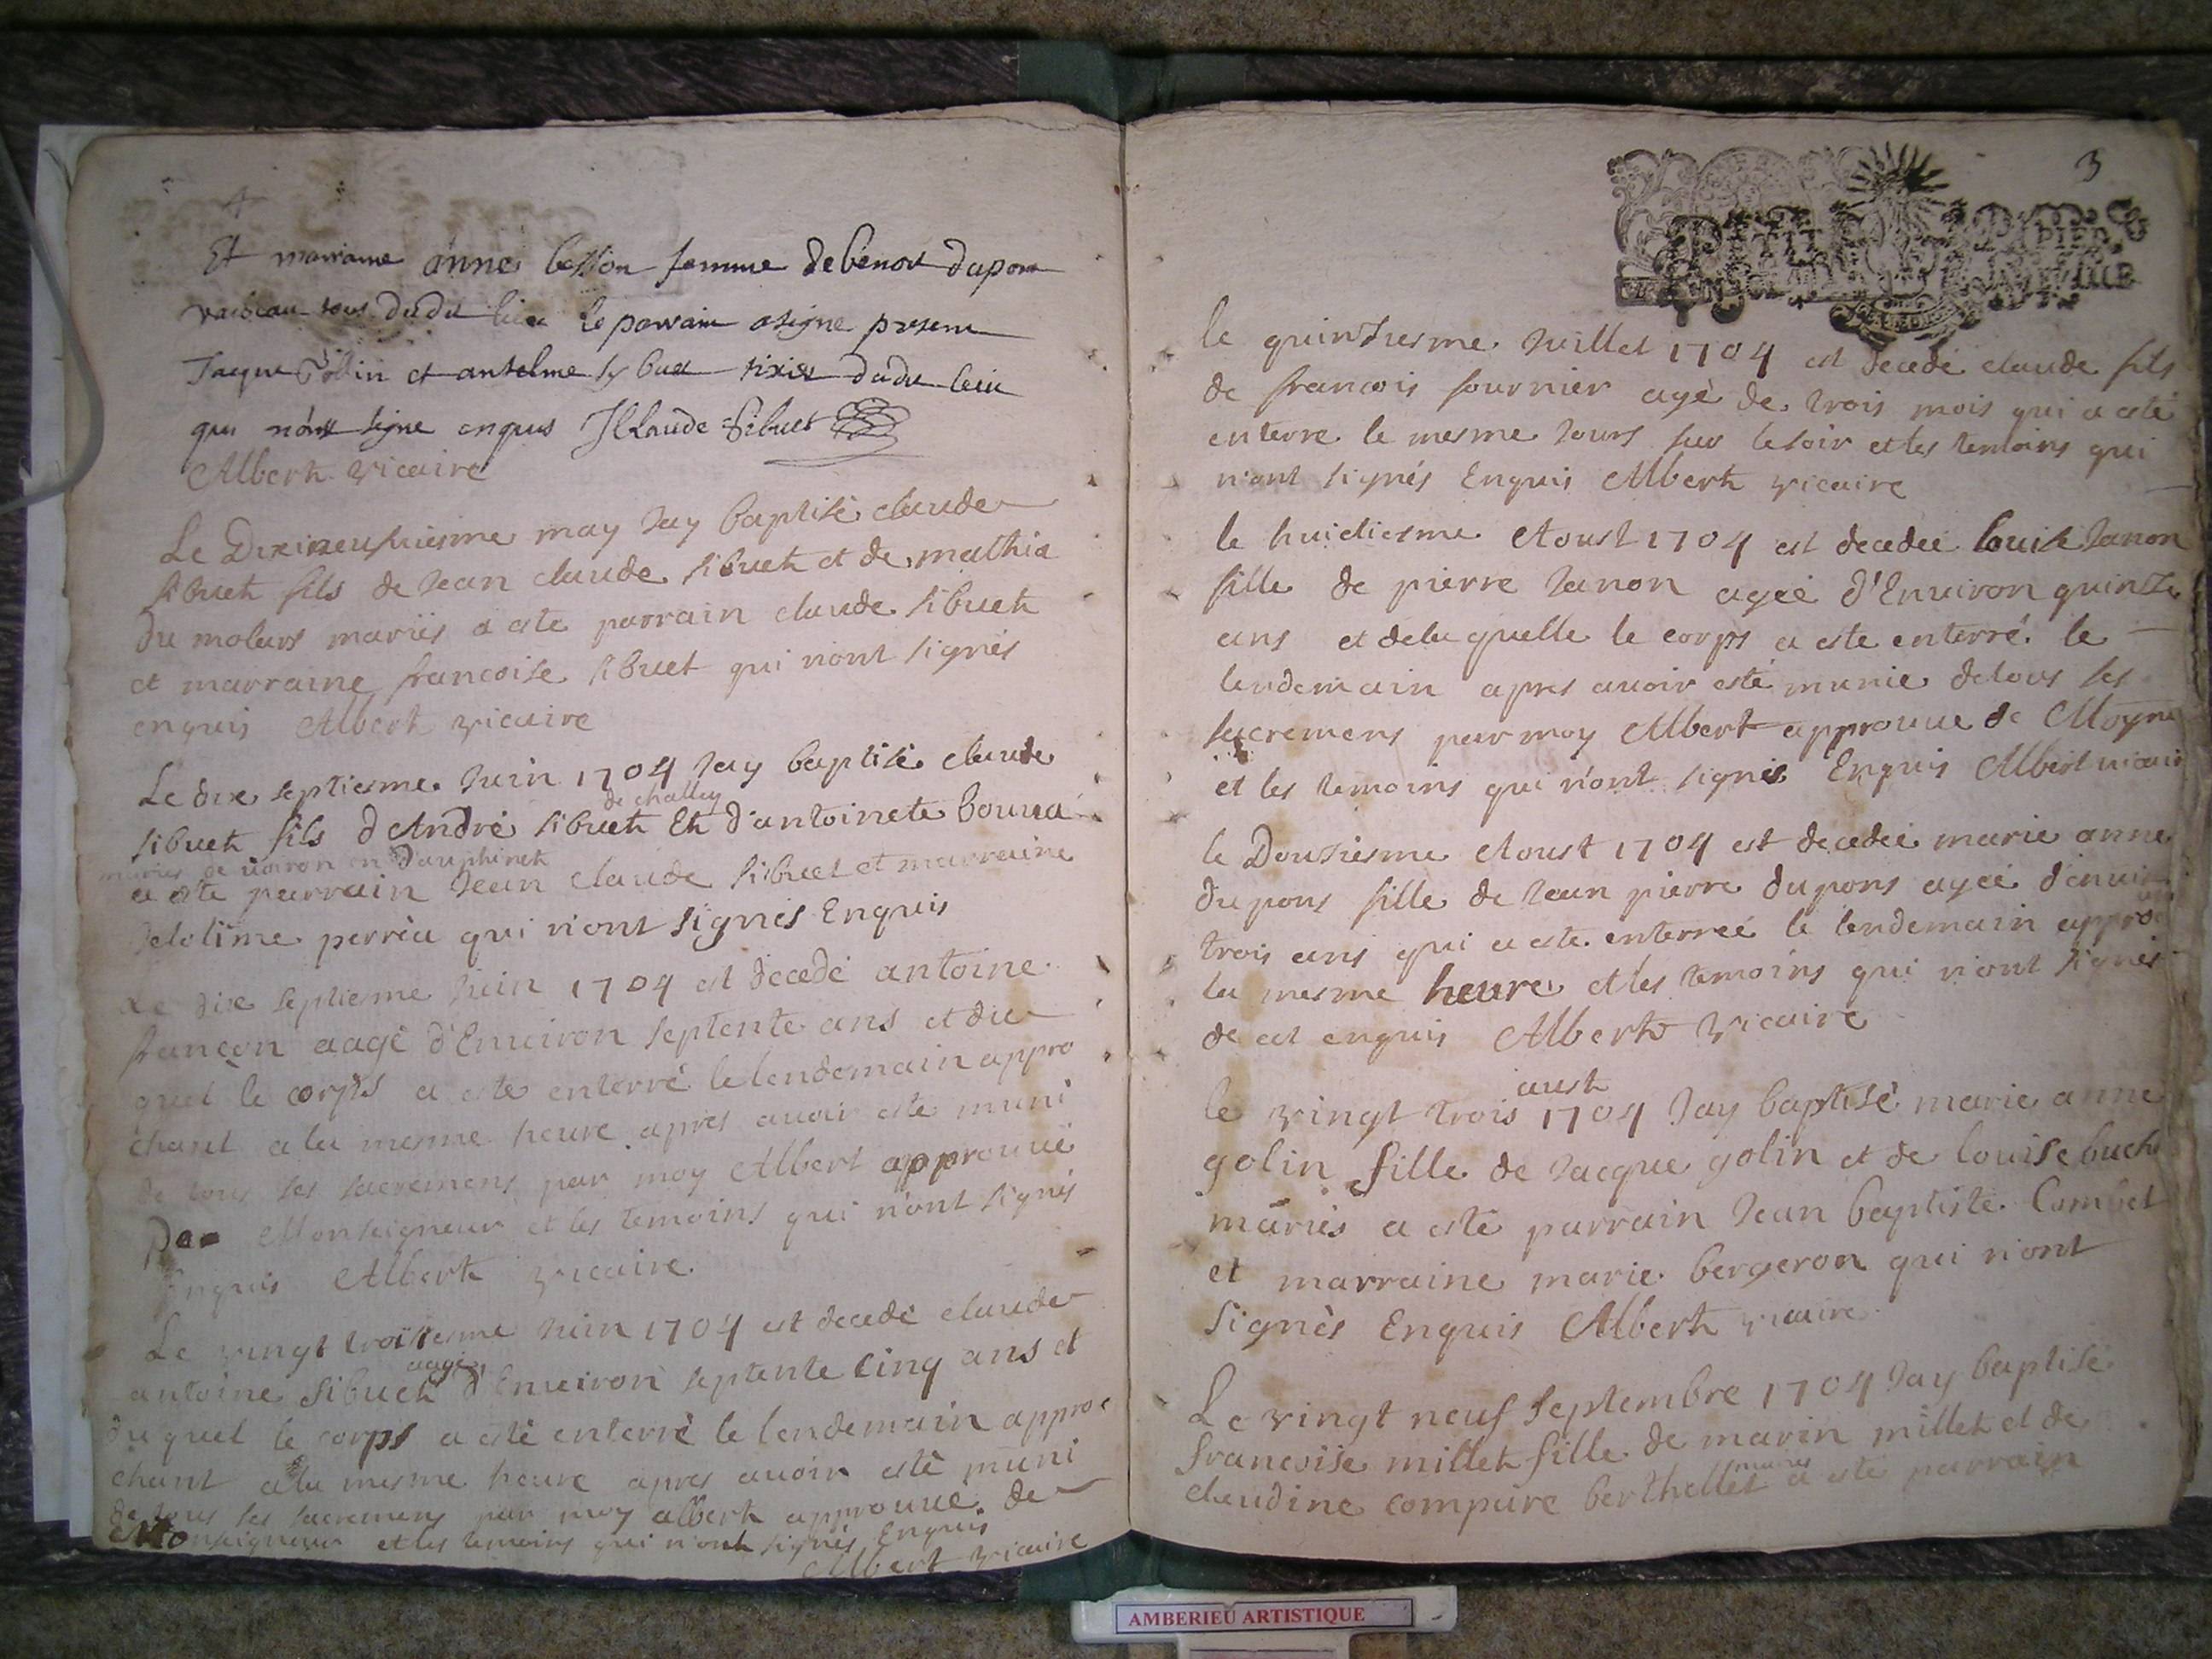 Et marraine anne besson femme de benoit dupon
tous dudit lieu le parrain a signe present
Jacque Collin et anselme sybuet dudit lieu
qui n'ont signe enquis J Claude Sibuet
Albert vicaire
Le Dixineufuiesme may Jay baptisé claude
sibuet fils de Jean claude sibuet et de mathia
du molars mariés a este parrain claude sibuet
et marraine francoise sibuet qui n'ont signés
enquis Albert vicaire
Le dix septiesme Juin 1704 Jay baptisé claude
de challey
sibuet fils d'André sibuet Et d'antoinete
mariés de voiron en dauphinet
a este parrain Jean claude sibuet et marraine
perréa qui n'ont signés Enquis
Le dix septiesme Juin 1704 est decedé antoine
françon aagé d'Enuiron septente ans et du
quel le corps a este enterré le lendemain appro
chant a la mesme heure apres auoir este muni
de tous ses sacremens par moy Albert approuué
Par Monseigneur et les temoins qui n'ont signés
Enquis Albert vicaire
Le vingt troisiesme Juin 1704 est decedé claude
aagé
antoine sibuet d'Enuiron septente cinq ans et
duquel le corps a esté enterré le lendemain appro
chant a la mesme heure apres auoir esté muni
de tous ses sacremens par moy albert approuué de
Monseigneur et les temoins qui n'ont signés Enquis
Albert vicaire
3
le quinsiesme Juillet 1704 est decedé claude fils
de francois fournier agé de trois mois qui a esté
enterre le mesme Jours sur le soir et les temoins qui
n'ont signés Enquis Albert vicaire
le huictiesme Aoust 1704 est decedée louise Janon
fille de pierre Janon agée d'Enuiron quinse
ans et de la quelle le corps a este enterré le
lendemain apres auoir esté munie de tous ses
sacremens par moy Albert approuue de
et les temoins qui n'ont signés Enquis Albert vicaire
le Dousiesme Aoust 1704 est decedée marie anne
dupons fille de Jean pierre dupons agée d'enuiron
trois ans qui a este enterreé le lendemain
la mesme heure et les temoins qui n'ont signés
de ce enquis Albert vicaire
aust
le vingt trois 1704 Jay baptisé marie anne
golin fille de Jacque golin et de louise
mariés a esté parrain Jean baptiste Combet
et marraine marie bergeron qui n'ont
signés Enquis Albert vicaire
Le vingt neuf Septembre 1704 Jay baptisé
francoise millet fille de marin millet et de
mariés
claudine compare berthellet a este parrain
AMBERIEU ARTISTIQUE